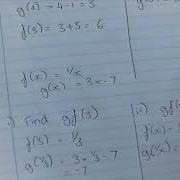 g(4) = 4-1 = 3
f(3) = 3+3 = 6
f(x) = 1/x
g(x) = 3x-7
) Find gf(3)
f(3) = 1/3
g(1/3) = 3×1/3 -7
= -7
ii)
f(x) =
g(1/x) =